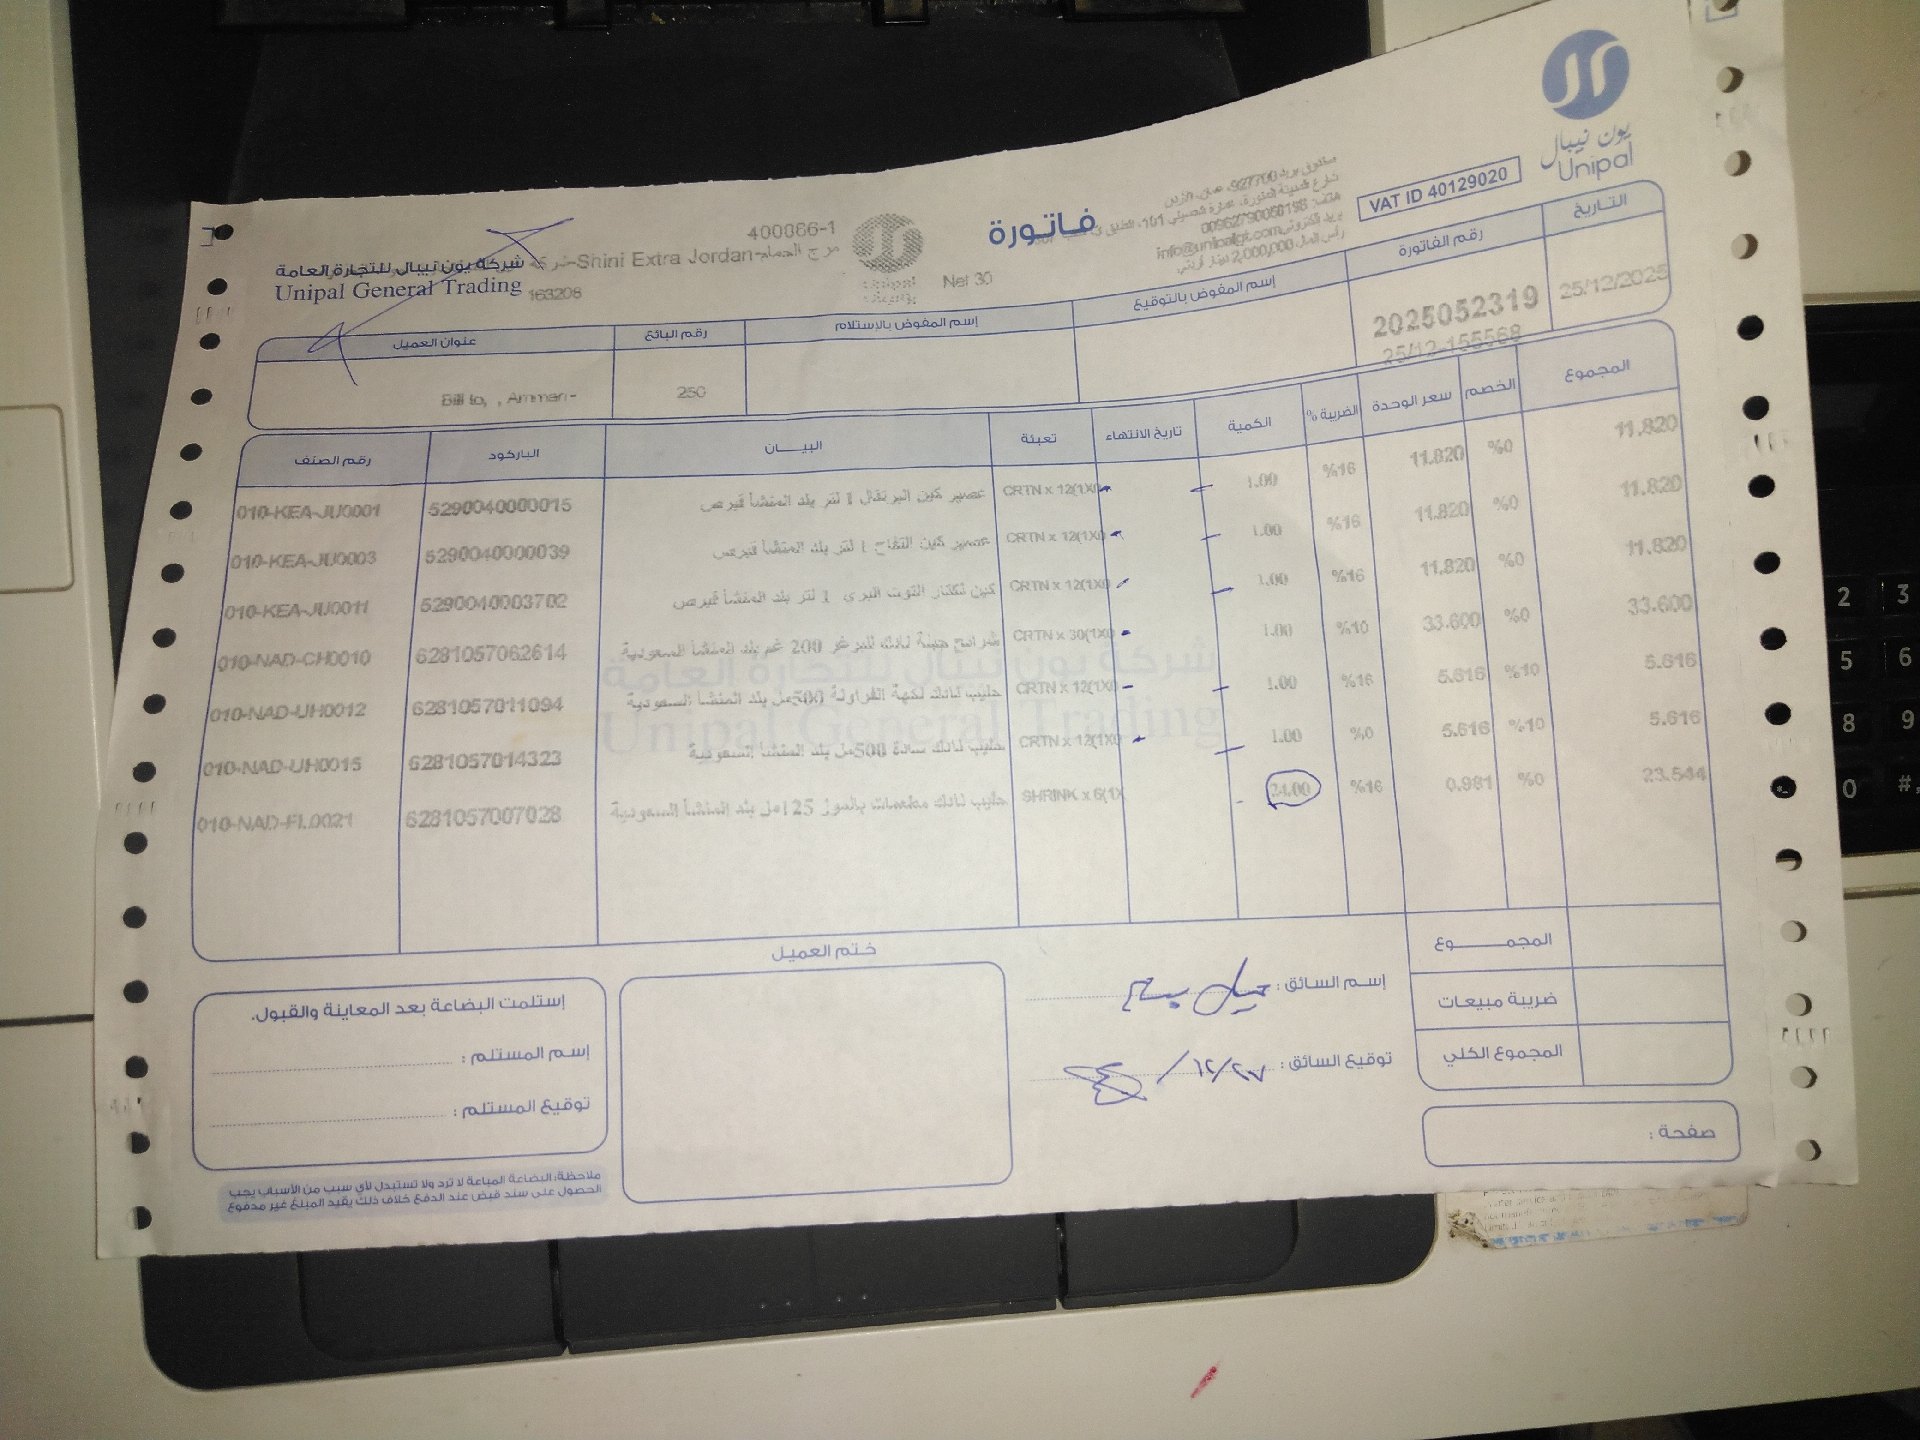 يون نيبال
Unipal
VAT ID 40129020
صندوق بريد 927700، عمان، الأردن
info@unipalgt.com
رأس المال 2,000,000 دينار أردني
فاتورة
400066-1
Shini Extra Jordan-مرج الحمام
163206
Net 30
شركة يون نيبال للتجارة العامة
Unipal General Trading
التاريخ
رقم الفاتورة
إسم المفوض بالتوقيع
إسم المفوض بالإستلام
رقم البائع
عنوان العميل
25/12/2025
2025052319
25/12-155568
250
Bill to, , Amman-
رقم الصنف الباركود البيـــان تعبئة تاريخ الانتهاء الكمية الضريبة % سعر الوحدة الخصم المجموع
010-KEA-JU0001 5290040000015 عصير كين البرتقال 1 لتر بلد المنشأ قبرص CRTN x 12(1X0 1.00 %16 11.820 %0 11.820
010-KEA-JU0003 5290040000039 عصير كين التفاح 1 لتر بلد المنشأ قبرص CRTN x 12(1X0 1.00 %16 11.820 %0 11.820
010-KEA-JU0011 5290040003702 كين نكتار التوت البري 1 لتر بلد المنشأ قبرص CRTN x 12(1X0 1.00 %16 11.820 %0 11.820
010-NAD-CH0010 6281057062614 شرائح جبنة نادك للبرغر 200 غم بلد المنشأ السعودية CRTN x 30(1X0 1.00 %10 33.600 %0 33.600
010-NAD-UH0012 6281057011094 حليب نادك نكهة الفراولة 500مل بلد المنشأ السعودية CRTN x 12(1X0 1.00 %16 5.616 %10 5.616
010-NAD-UH0015 6281057014323 حليب نادك سادة 500مل بلد المنشأ السعودية CRTN x 12(1X0 1.00 %0 5.616 %10 5.616
010-NAD-FL0021 6281057007028 حليب نادك مطعمات بالموز 125مل بلد المنشأ السعودية SHRINK x 6(1X 24.00 %16 0.981 %0 23.544
شركة يون نيبال للتجارة العامة
Unipal General Trading
المجمـــــوع
ضريبة مبيعات
المجموع الكلي
صفحة :
إسم السائق :
توقيع السائق : ١٢/٢٧
ختم العميل
إستلمت البضاعة بعد المعاينة والقبول.
إسم المستلم :
توقيع المستلم :
ملاحظة: البضاعة المباعة لا ترد ولا تستبدل لأي سبب من الأسباب يجب
الحصول على سند قبض عند الدفع خلاف ذلك يقيد المبلغ غير مدفوع
2 3
5 6
8 9
0 #